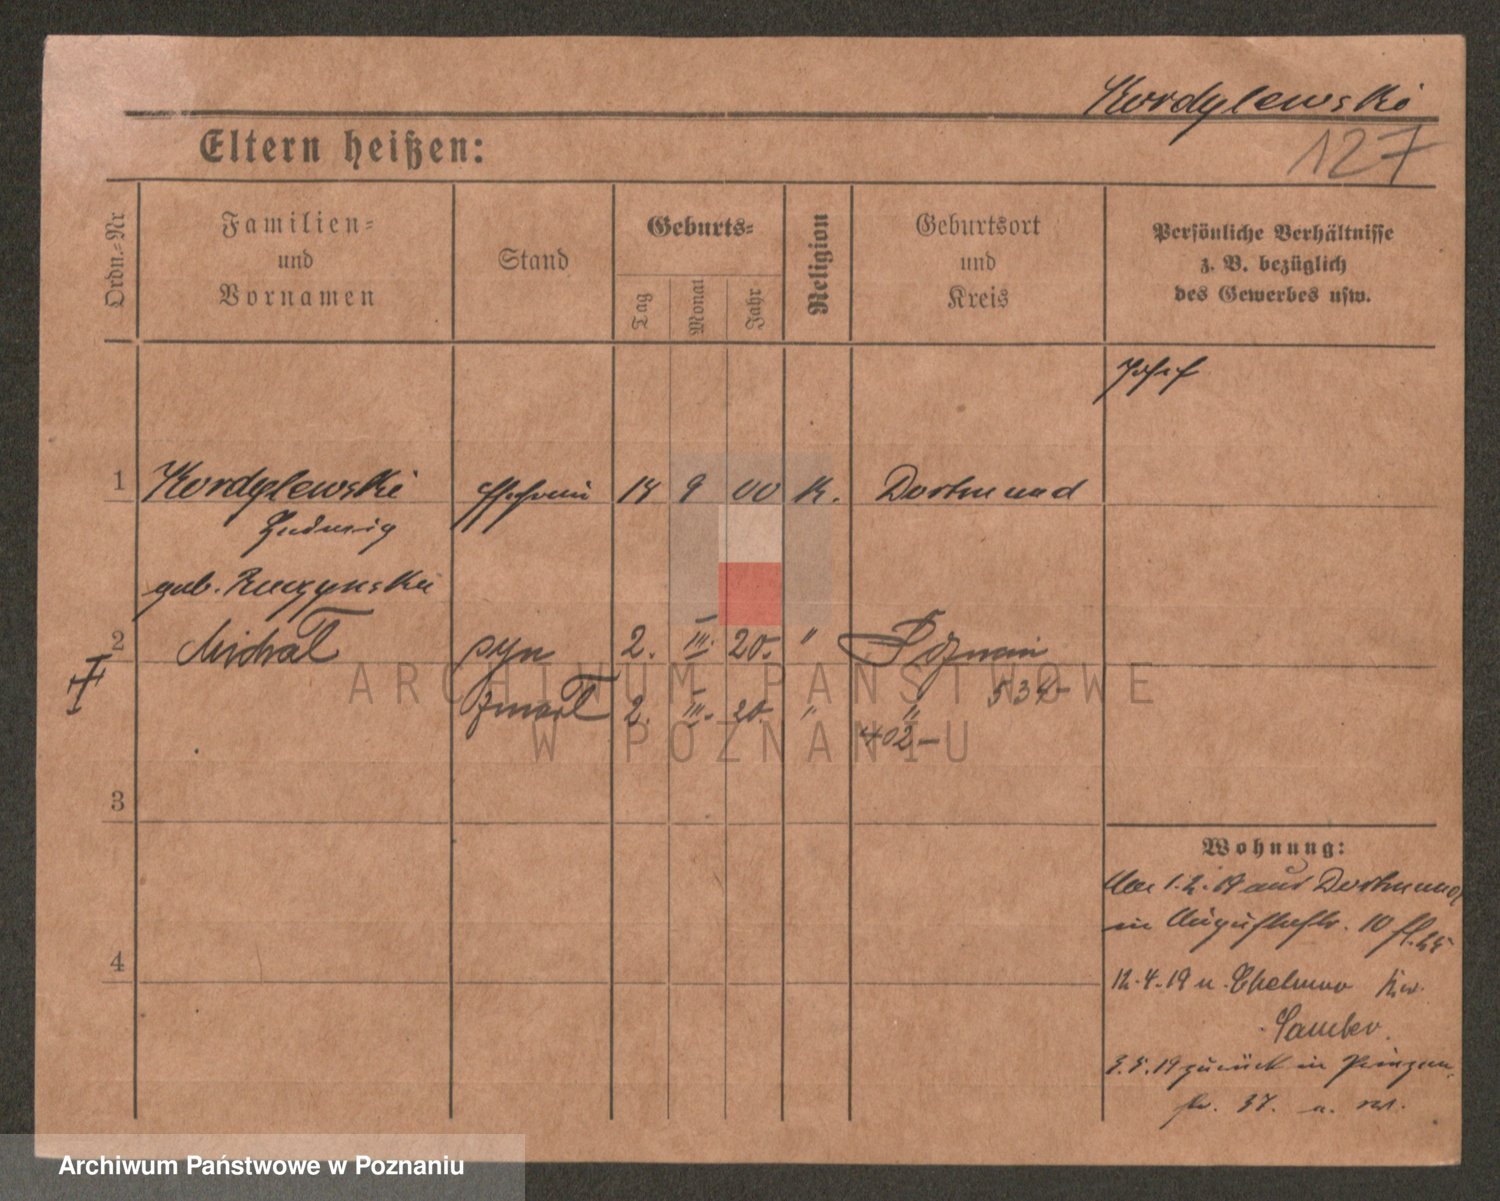 Kordylewski
Eltern heißen:
127
Ordn.-Nr
Familien-
und
Vornamen
Stand
Geburts-
Tag
Monat
Jahr
Religion
Geburtsort
und
Kreis
Persönliche Verhältnisse
z. B. bezüglich
des Gewerbes usw.
Josef
1 Kordylewski Ehefrau 14 9 00 K. Dortmund
Ludwig
geb.
2 Michał syn 2. III. 20. " Poznań
534-
zmarł 2. III. 20. " "
402-
3
4
Wohnung:
1.2.19 aus Dortmund
in Augustastr. 10
12.4.19 n. Chelmno Kr.
Samter.
3.5.19 zurück in Prinzen-
str. 37.
ARCHIWUM PAŃSTWOWE
W POZNANIU
Archiwum Państwowe w Poznaniu